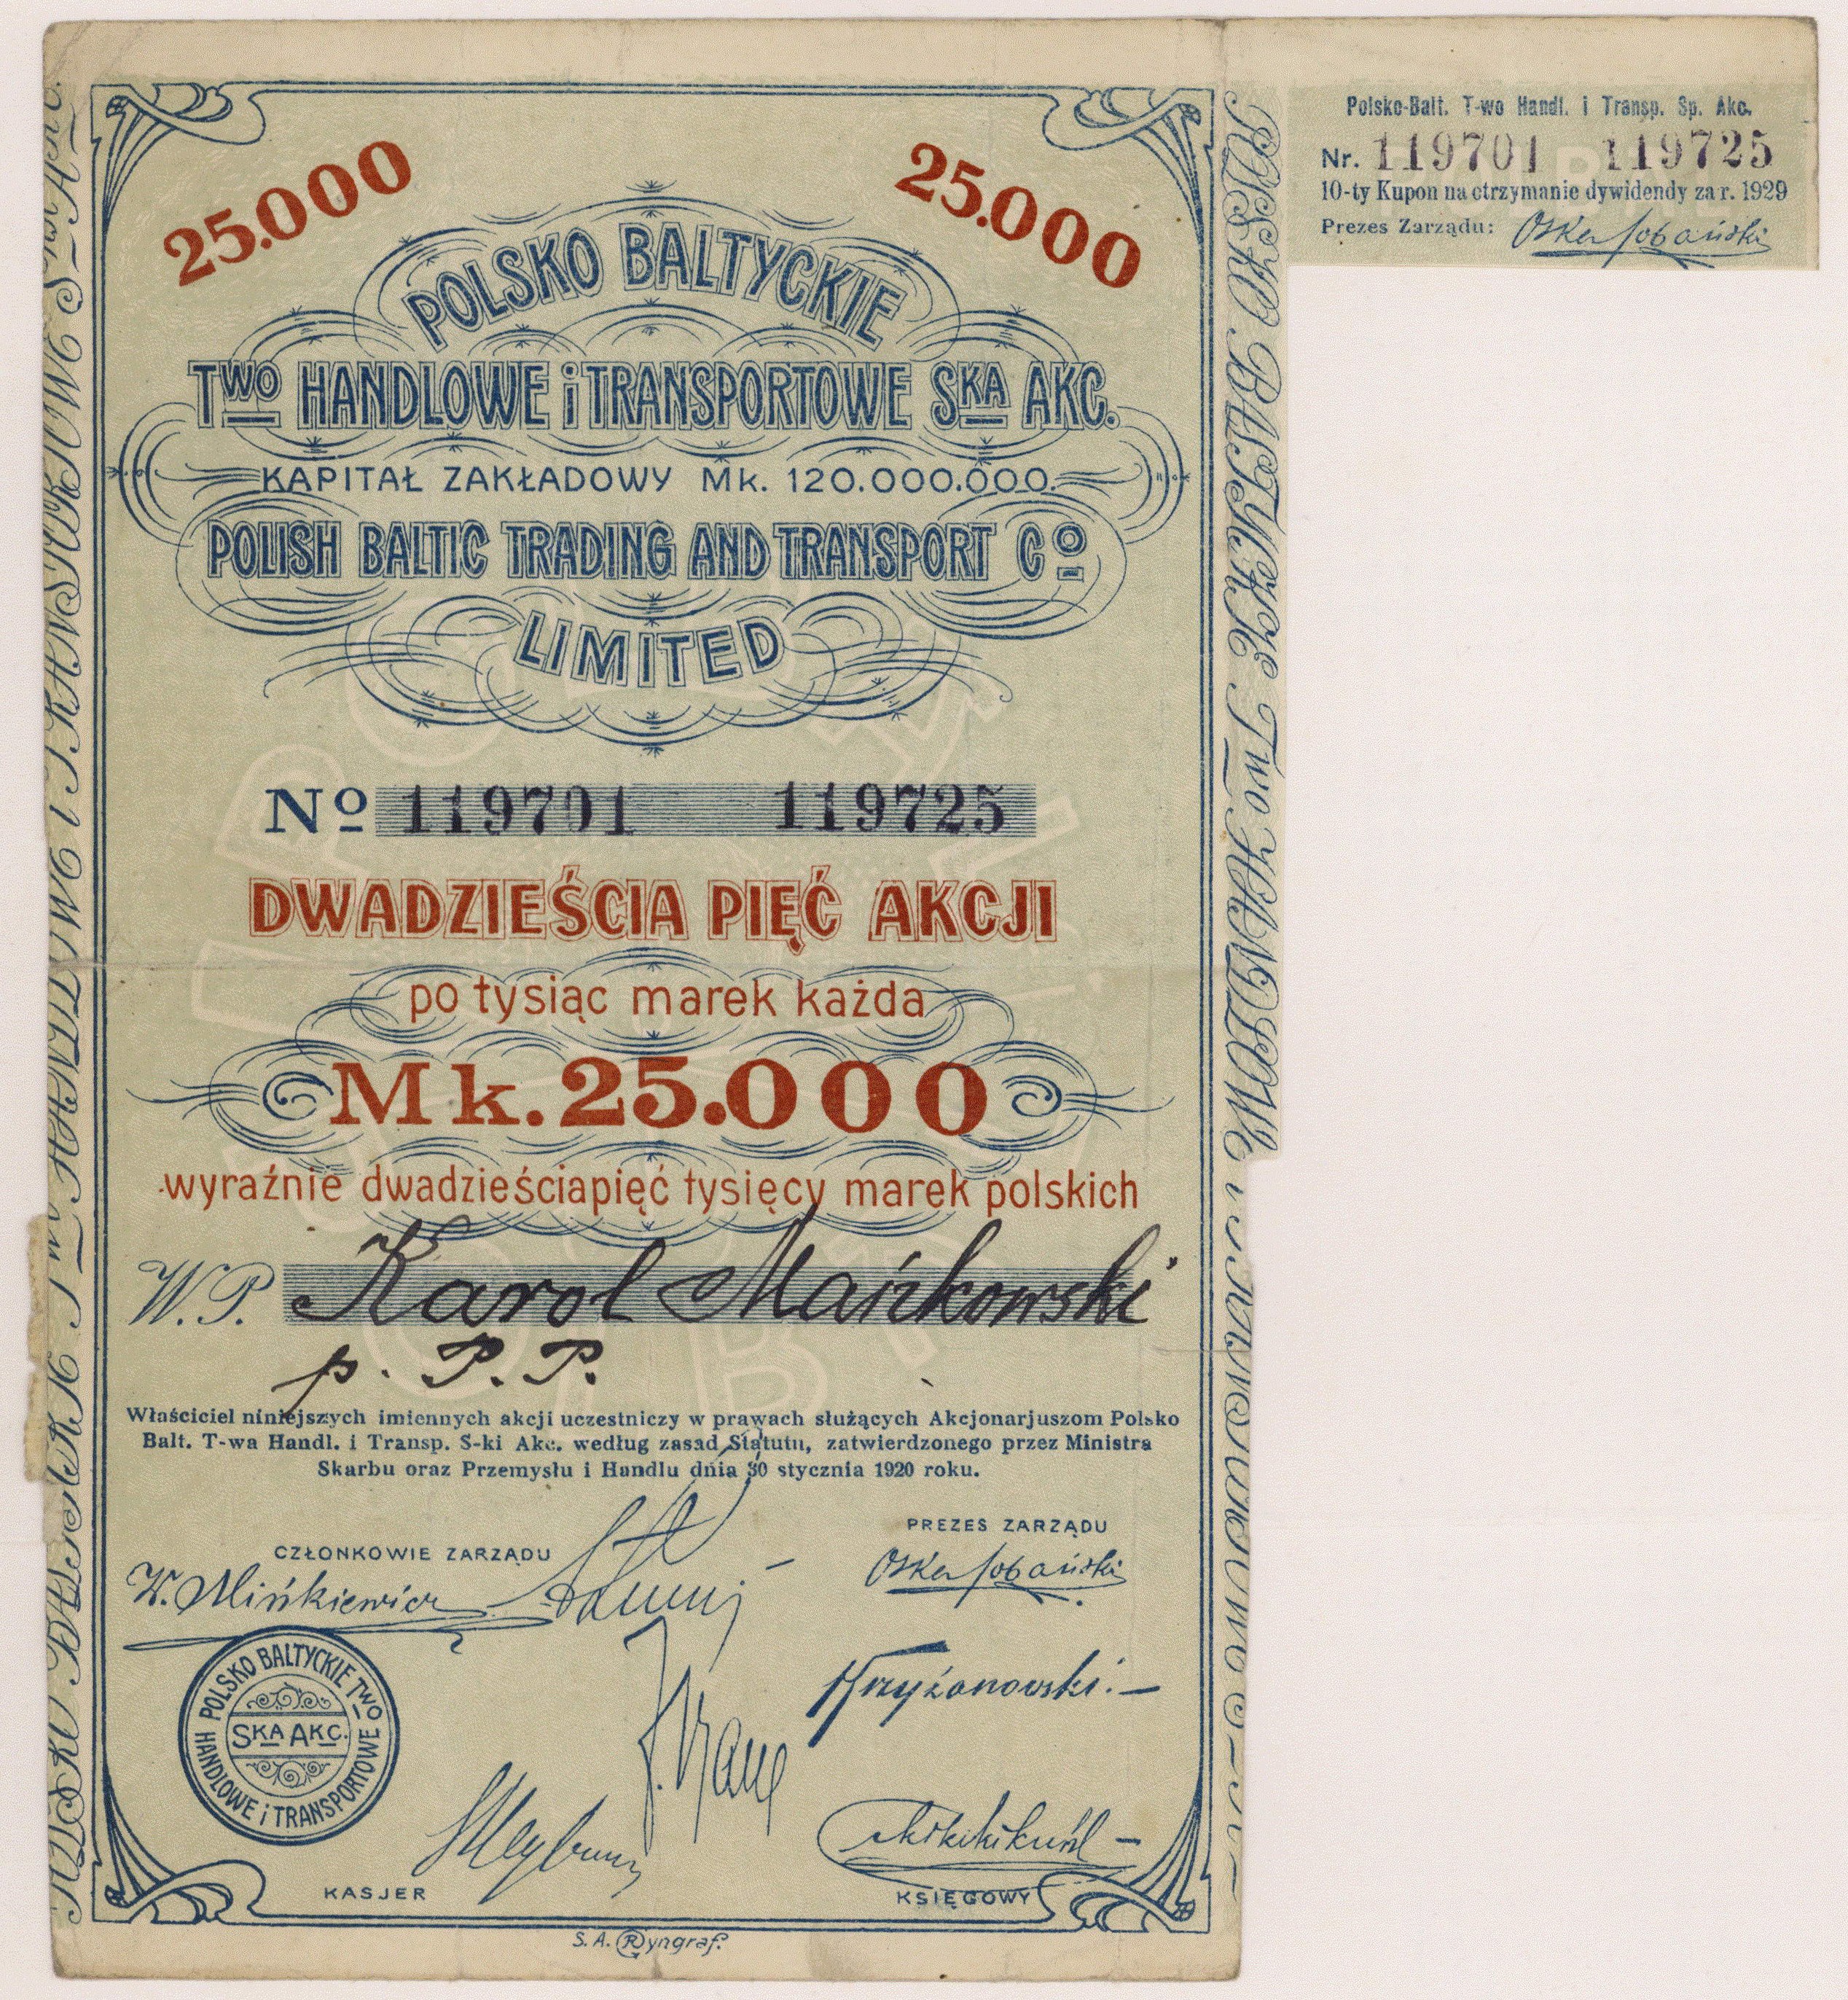 25.000
25.000
POLSKO BALTYCKIE
TWO HANDLOWE i TRANSPORTOWE SKA AKC.
KAPITAŁ ZAKŁADOWY Mk. 120.000.000.
POLISH BALTIC TRADING AND TRANSPORT Co
LIMITED
No 119701 119725
DWADZIEŚCIA PIĘĆ AKCJI
po tysiąc marek każda
Mk. 25.000
wyraźnie dwadzieściapięć tysięcy marek polskich
W.P. Karol Mańkowski
p. P. P.
Właściciel niniejszych imiennych akcji uczestniczy w prawach służących Akcjonarjuszom Polsko
Balt. T-wa Handl. i Transp. S-ki Akc. według zasad Statutu, zatwierdzonego przez Ministra
Skarbu oraz Przemysłu i Handlu dnia 30 stycznia 1920 roku.
CZŁONKOWIE ZARZĄDU
PREZES ZARZĄDU
W. Mińkiewicz
Oskar Sobański
Krzyżanowski
POLSKO BALTYCKIE TWO
HANDLOWE i TRANSPORTOWE
SKA AKC.
KASJER
KSIĘGOWY
S. A. Ryngraf.
Polsko-Balt. T-wo Handl. i Transp. Sp. Akc.
Nr. 119701 119725
10-ty Kupon na otrzymanie dywidendy za r. 1929
Prezes Zarządu: Oskar Sobański